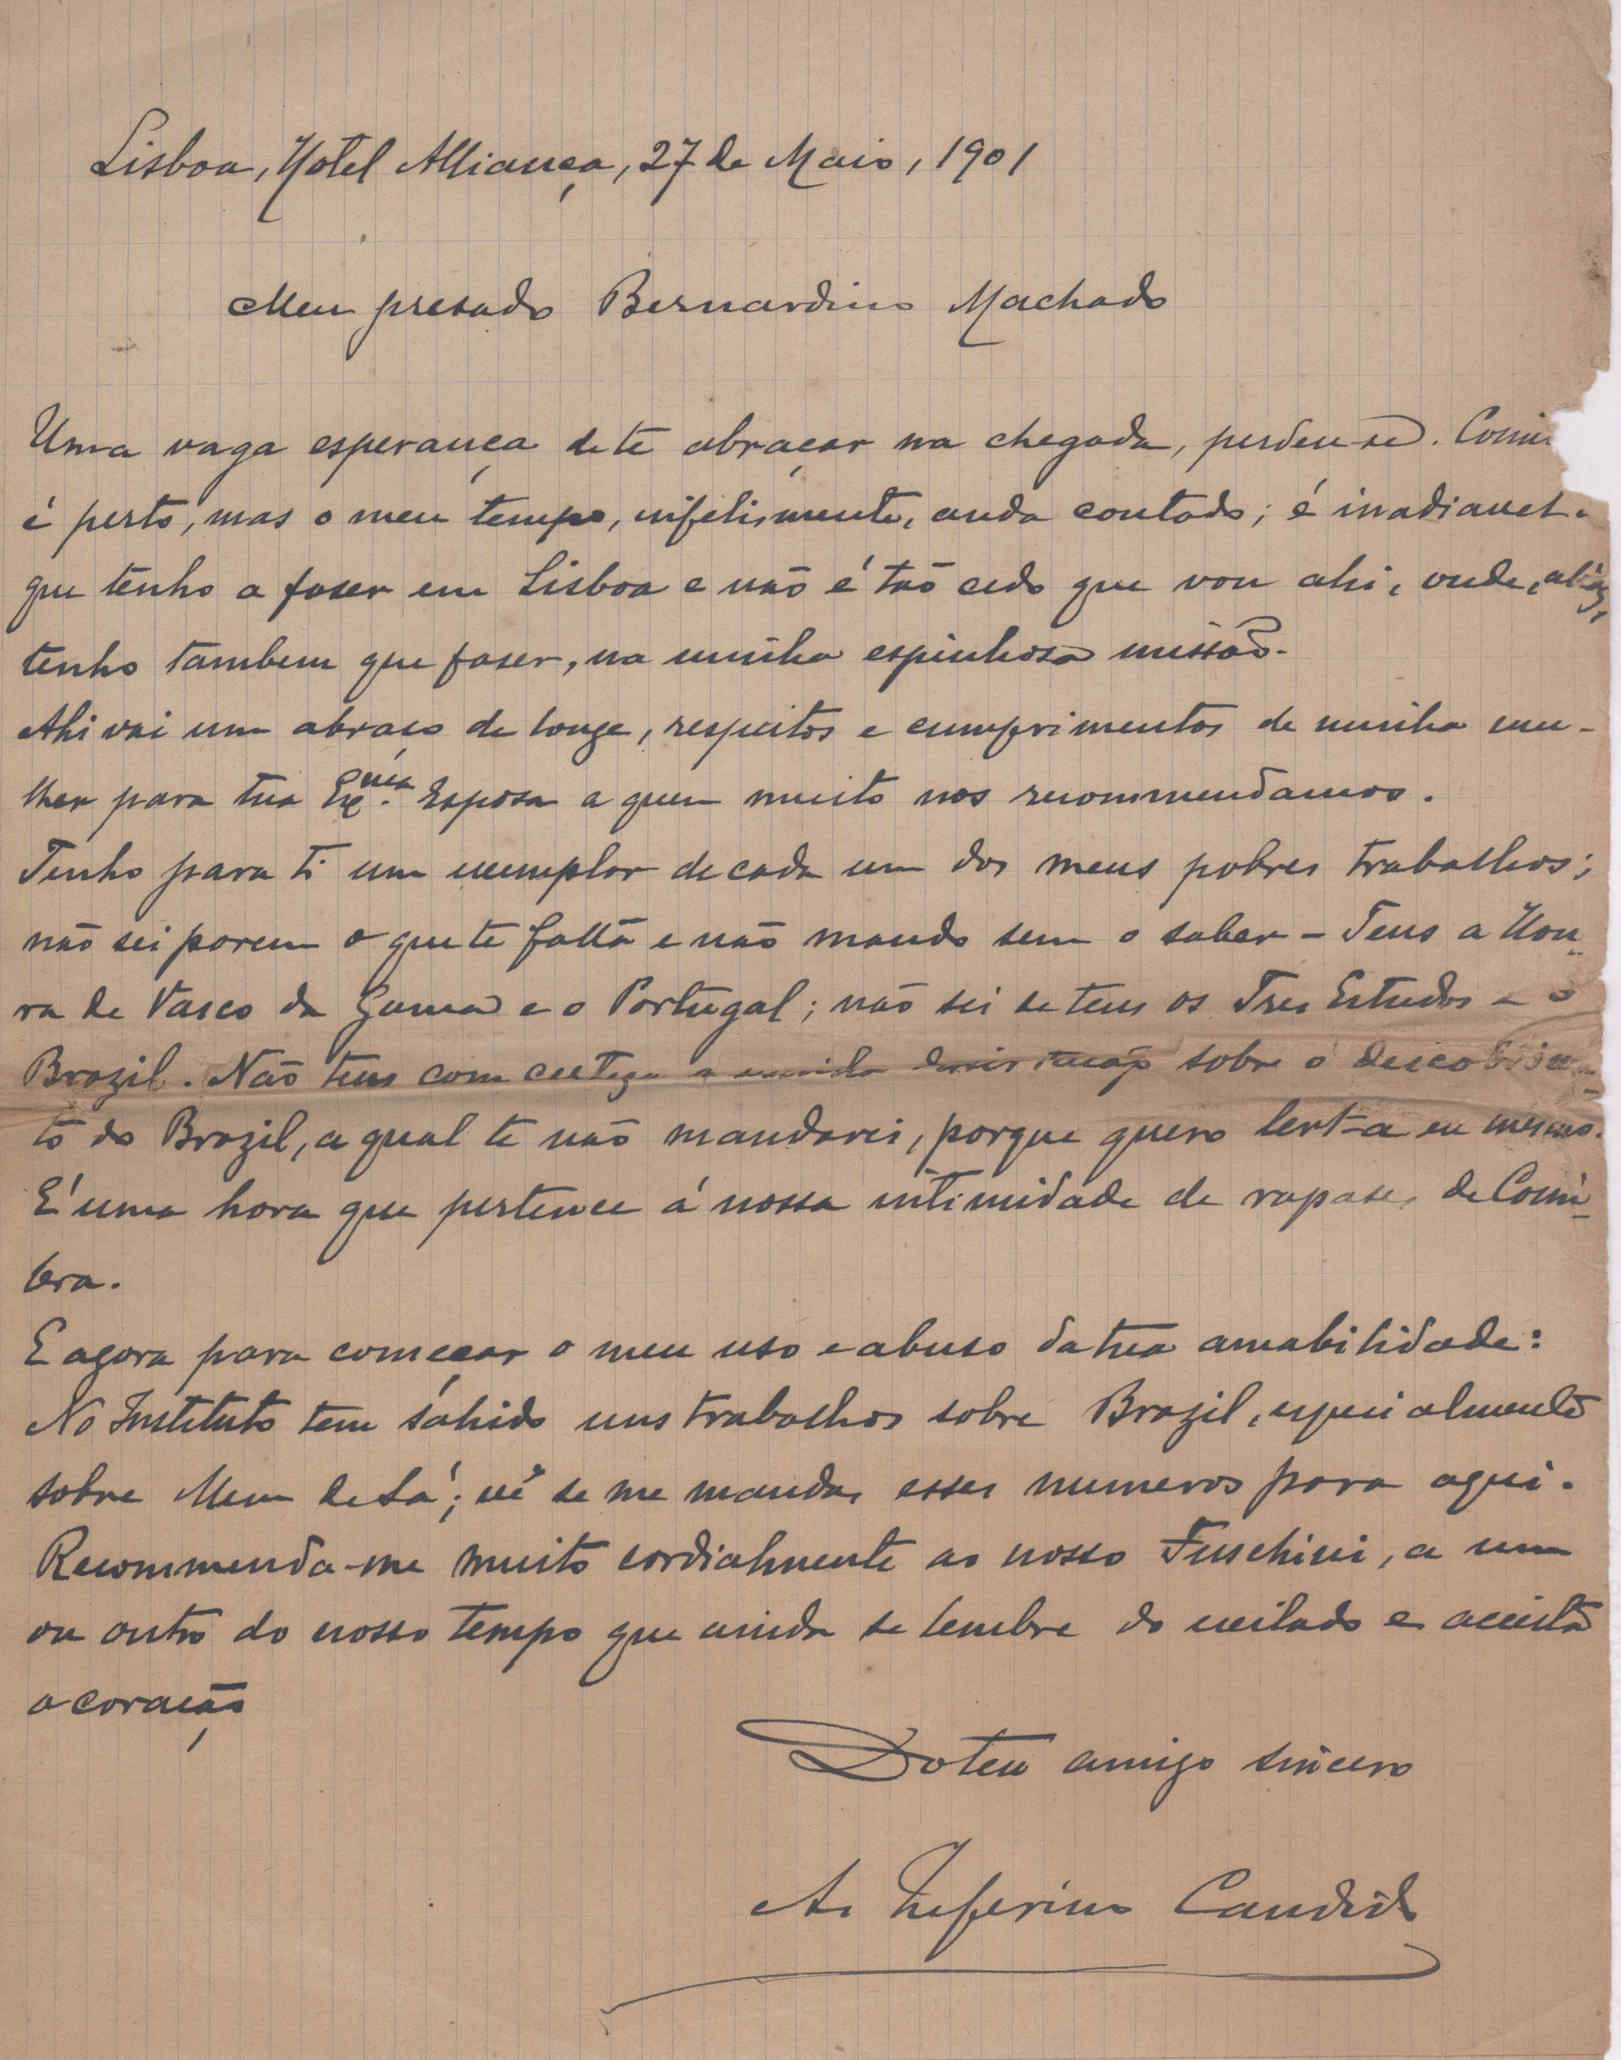 Lisboa, Hotel Alliança, 27 de Maio, 1901
Meu presado Bernardino Machado
Uma vaga esperança de te abraçar na chegada, perdeu-se. Coim
é perto, mas o meu tempo, infelismente, anda contado; é inadiavel o
que tenho a faser em Lisboa e não é tão cedo que vou ahi, onde, aliàs,
tenho tambem que faser, na minha espinhosa missão.
Ahi vai um abraço de longe, respeitos e cumprimentos de minha mu-
lher para tua Exma. Esposa a quem muito nos recommendamos.
Tenho para ti um exemplar de cada um dos meus pobres trabalhos;
não sei porem o que te falta e não mando sem o saber - Tens a Hon-
ra de Vasco da Gama e o Portugal; não sei se tens os Tres Estudos e o
Brazil. Não tens com certeza a minha sobre o descobrimen-
to do Brazil, a qual te não mandarei, porque quero lert-a eu mesmo.
É uma hora que pertence á nossa intimidade de rapases de Coim-
bra.
E agora para começar o meu uso e abuso da tua amabilidade:
No Instituto tem sahido uns trabalhos sobre Brazil, especialmente
sobre Mem de Sá; vê se me mandas esses numeros para aqui.
Recommenda-me muito cordialmente ao nosso Fuschini, a um
ou outro do nosso tempo que ainda se lembre do exilado e aceita
o coração
Do teu amigo sincero
A. Zeferino Candido